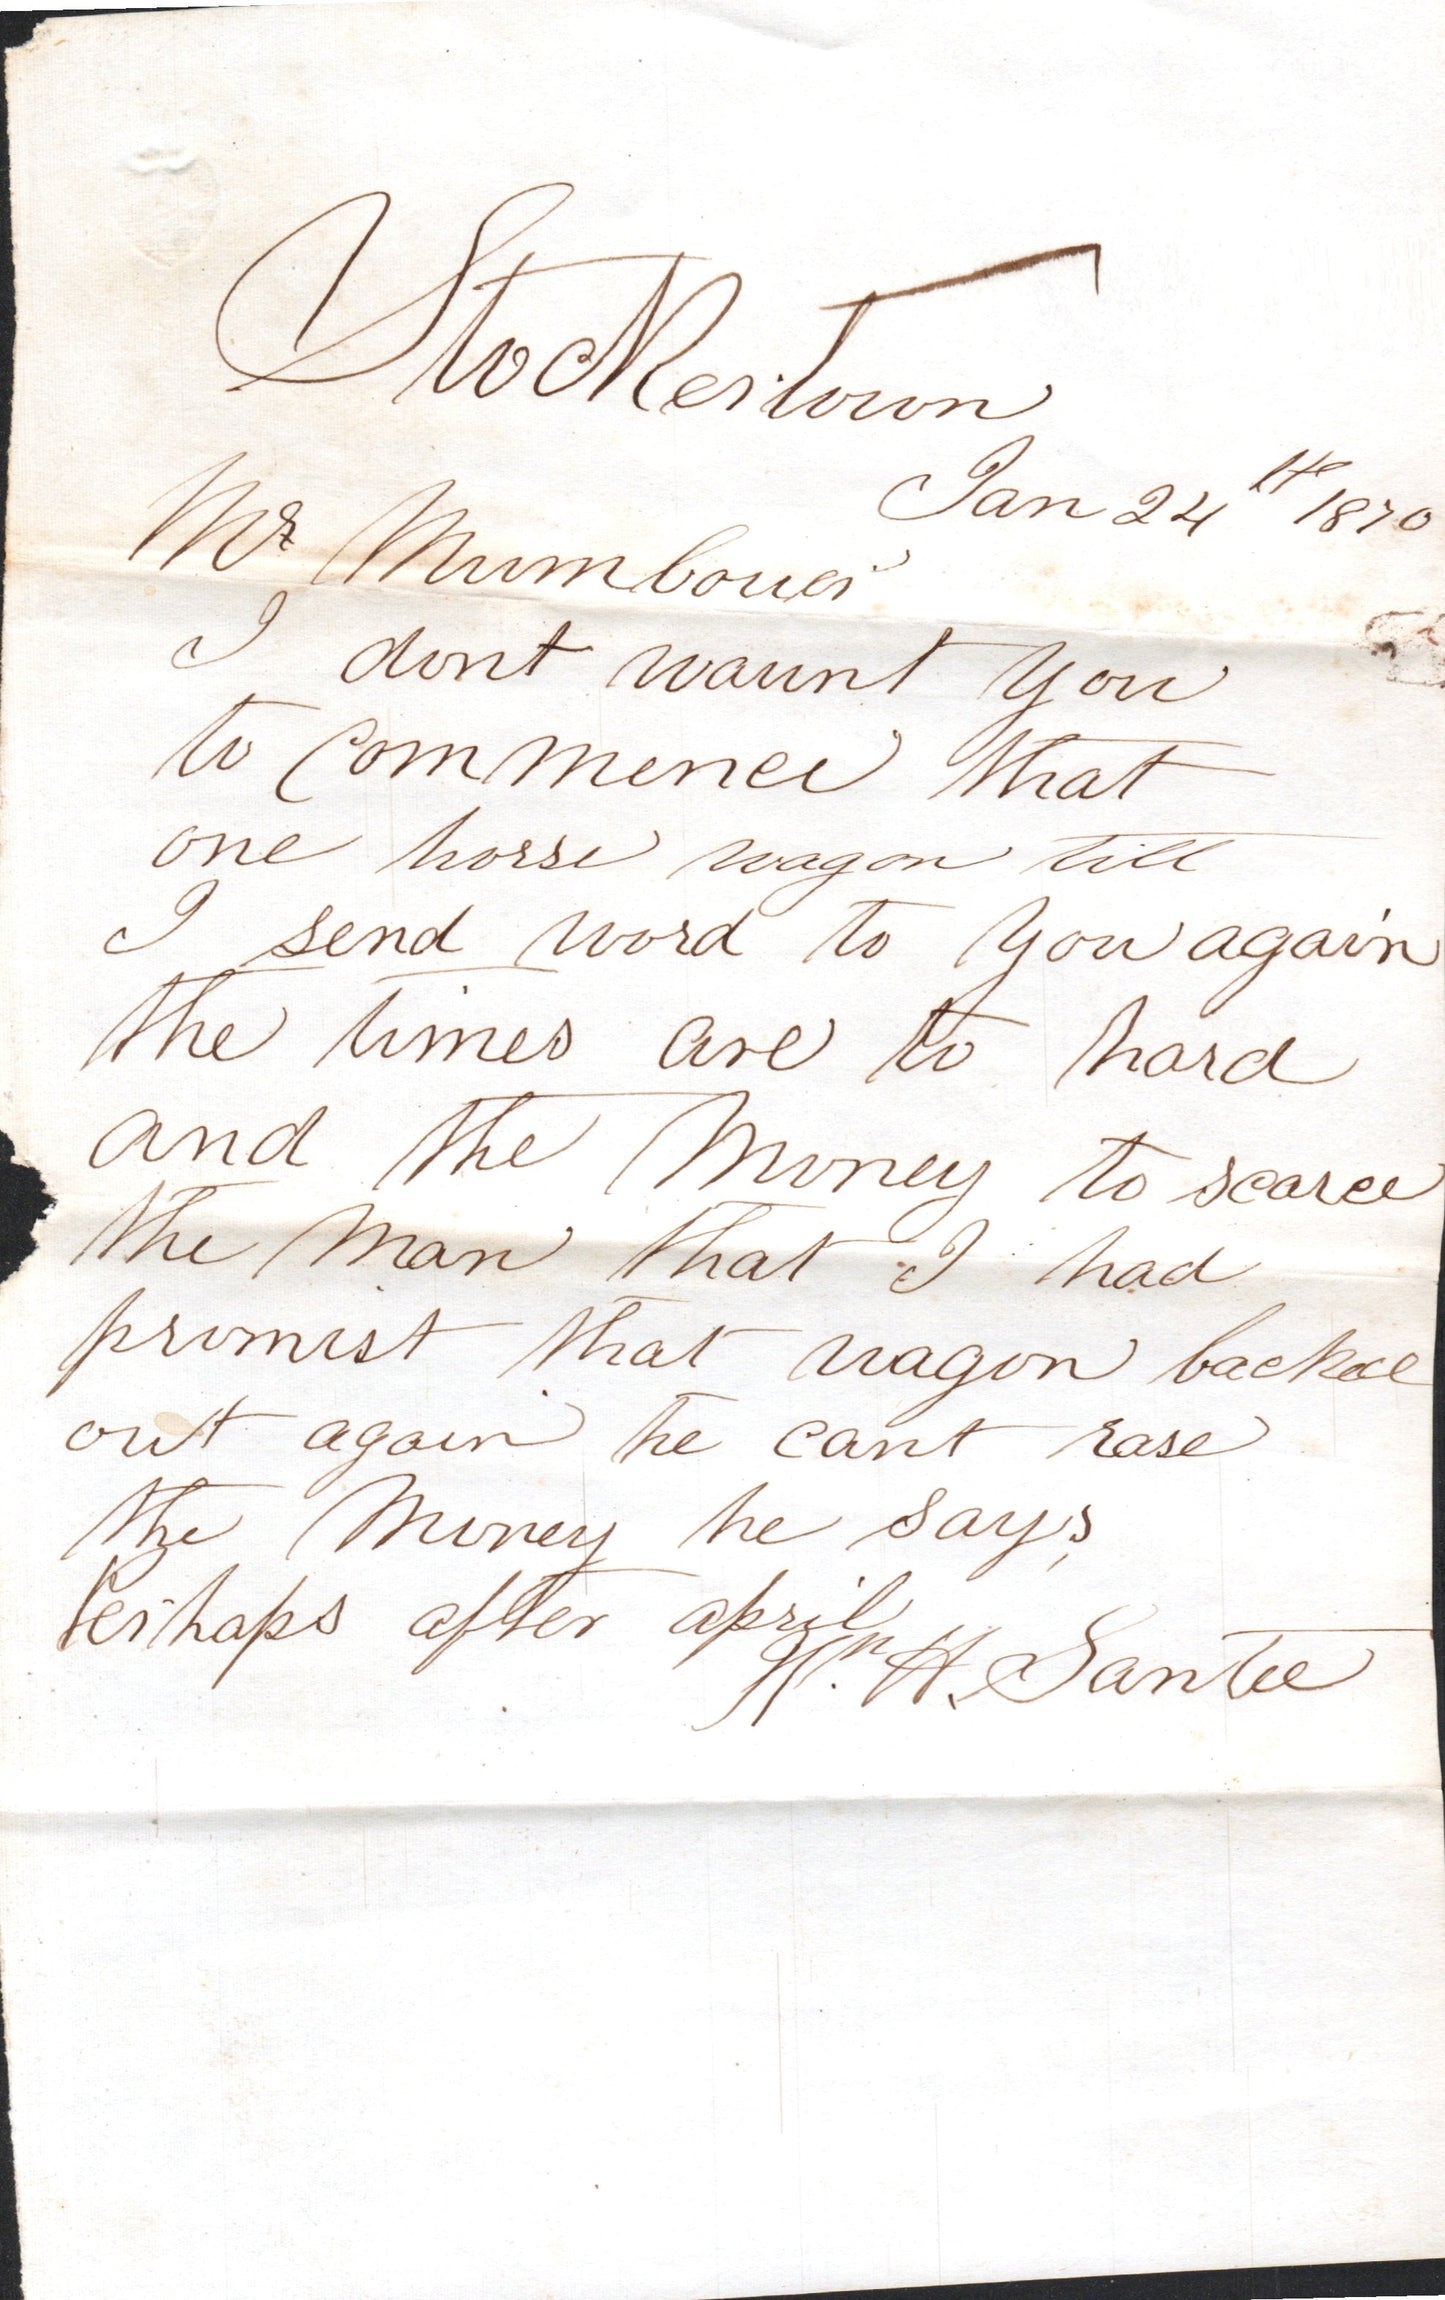 Stockertown
Jan 24th 1870
Mr Mumbouer
I dont waunt you
to Commence that
one horse wagon till
I send word to you again
the times are to hard
and the Money to scarce
the Man that I had
promist that wagon backed
out again he cant rase
the Money he says,
Perhaps after april
Wm. H. Santee